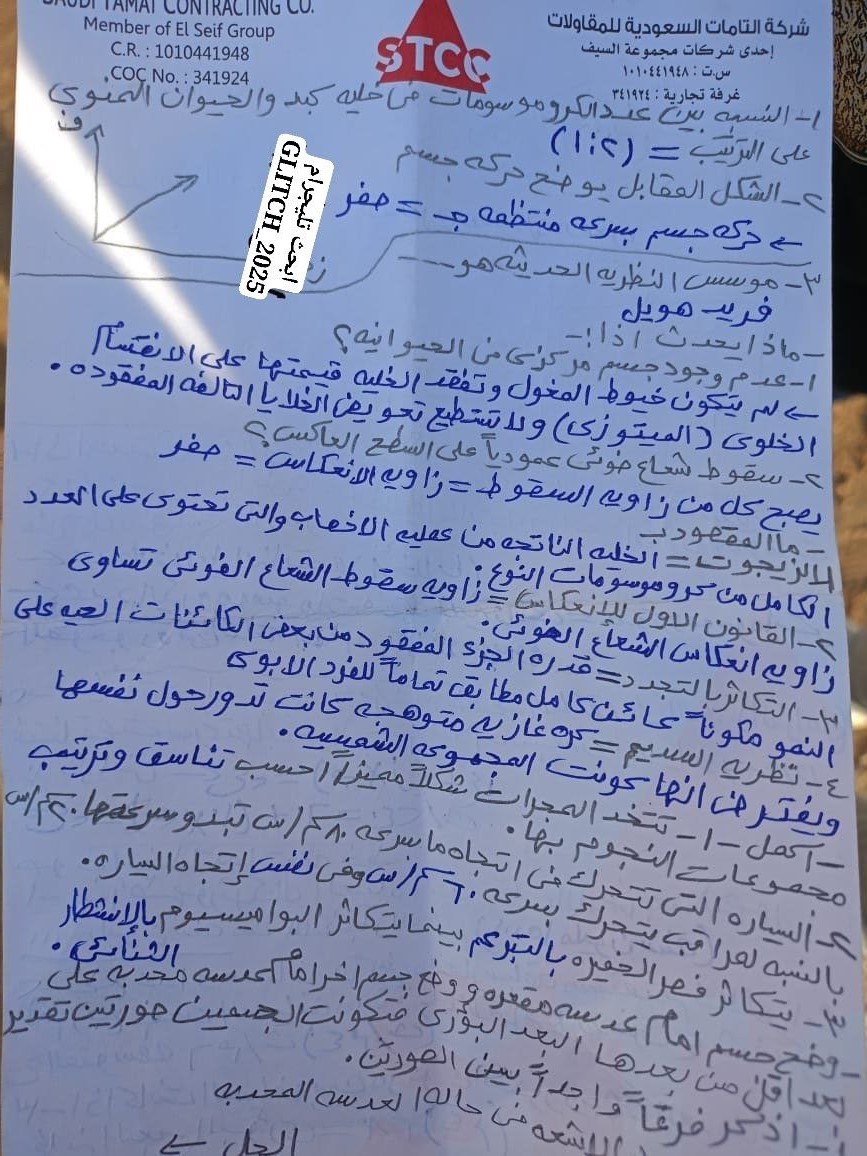 SAUDI TAMAT CONTRACTING CO.
Member of El Seif Group
C.R. : 1010441948
COC No. : 341924
STCC
شركة التامات السعودية للمقاولات
إحدى شركات مجموعة السيف
س.ت : ١٠١٠٤٤١٩٤٨
غرفة تجارية : ٣٤١٩٢٤
١- النسبه بين عدد الكروموسومات فى خليه كبد والحيوان المنوى
على الترتيب = (١:٢)
٢- الشكل المقابل يوضح حركه جسم
ف
ز
ابحث تليجرام
GLITCH_2025
حركه جسم بسرعه منتظمه جـ = صفر
٣- موسس النظريه الحديثه هو ----
فريد هويل
- ماذا يحدث اذا :-
١- عدم وجود جسم مركزى فى الحيوانيه؟
لم يتكون خيوط المغول وتفقد الخليه قيمتها على الانقسام
الخلوى (الميتوزى) ولا تستطيع تعويض الخلايا التالفه المفقوده .
٢- سقوط شعاع ضوئى عمودياً على السطح العاكس؟
يصبح كل من زاويه السقوط = زاويه الانعكاس = صفر
- ما المقصود بـ
١- الزيجوت = الخليه الناتجه من عمليه الاخصاب والتى تحتوى على العدد
الكامل من كروموسومات النوع .
٢- القانون الاول للإنعكاس = زاويه سقوط الشعاع الضوئى تساوى
زاويه انعكاس الشعاع الضوئى .
٣- التكاثر بالتجدد = قدره الجزء المفقود من بعض الكائنات الحيه على
النمو مكوناً كائن كامل مطابق تماماً للفرد الابوى
٤- نظريه السديم = كره غازيه متوهجه كانت تدور حول نفسها
ويفترض انها كونت المجموعه الشمسيه .
- اكمل - ١- تتخذ المجرات شكلاً مميزاً حسب تناسق وترتيب
مجموعات النجوم بها .
٢- السياره التى تتحرك فى اتجاه ما سرعه ٨٠ كم/س تبدو سرعتها ٢٠ كم/س
بالنسبه لمراقب يتحرك بسرعه ٦٠ كم/س وفى نفس إتجاه السياره .
٣- يتكاثر فطر الخميره بالتبرعم بينما يتكاثر البراميسيوم بالإنشطار
الثنائى .
- وضع جسم امام عدسه مقعره ووضع جسم اخر امام عدسه محدبه على
بعد اقل من بعدها البؤرى فتكونت للجسمين صورتين تقدير
١- اذكر فرقاً واحداً بين الصورتين .
الاشعه فى حاله العدسه المحدبه
الحل